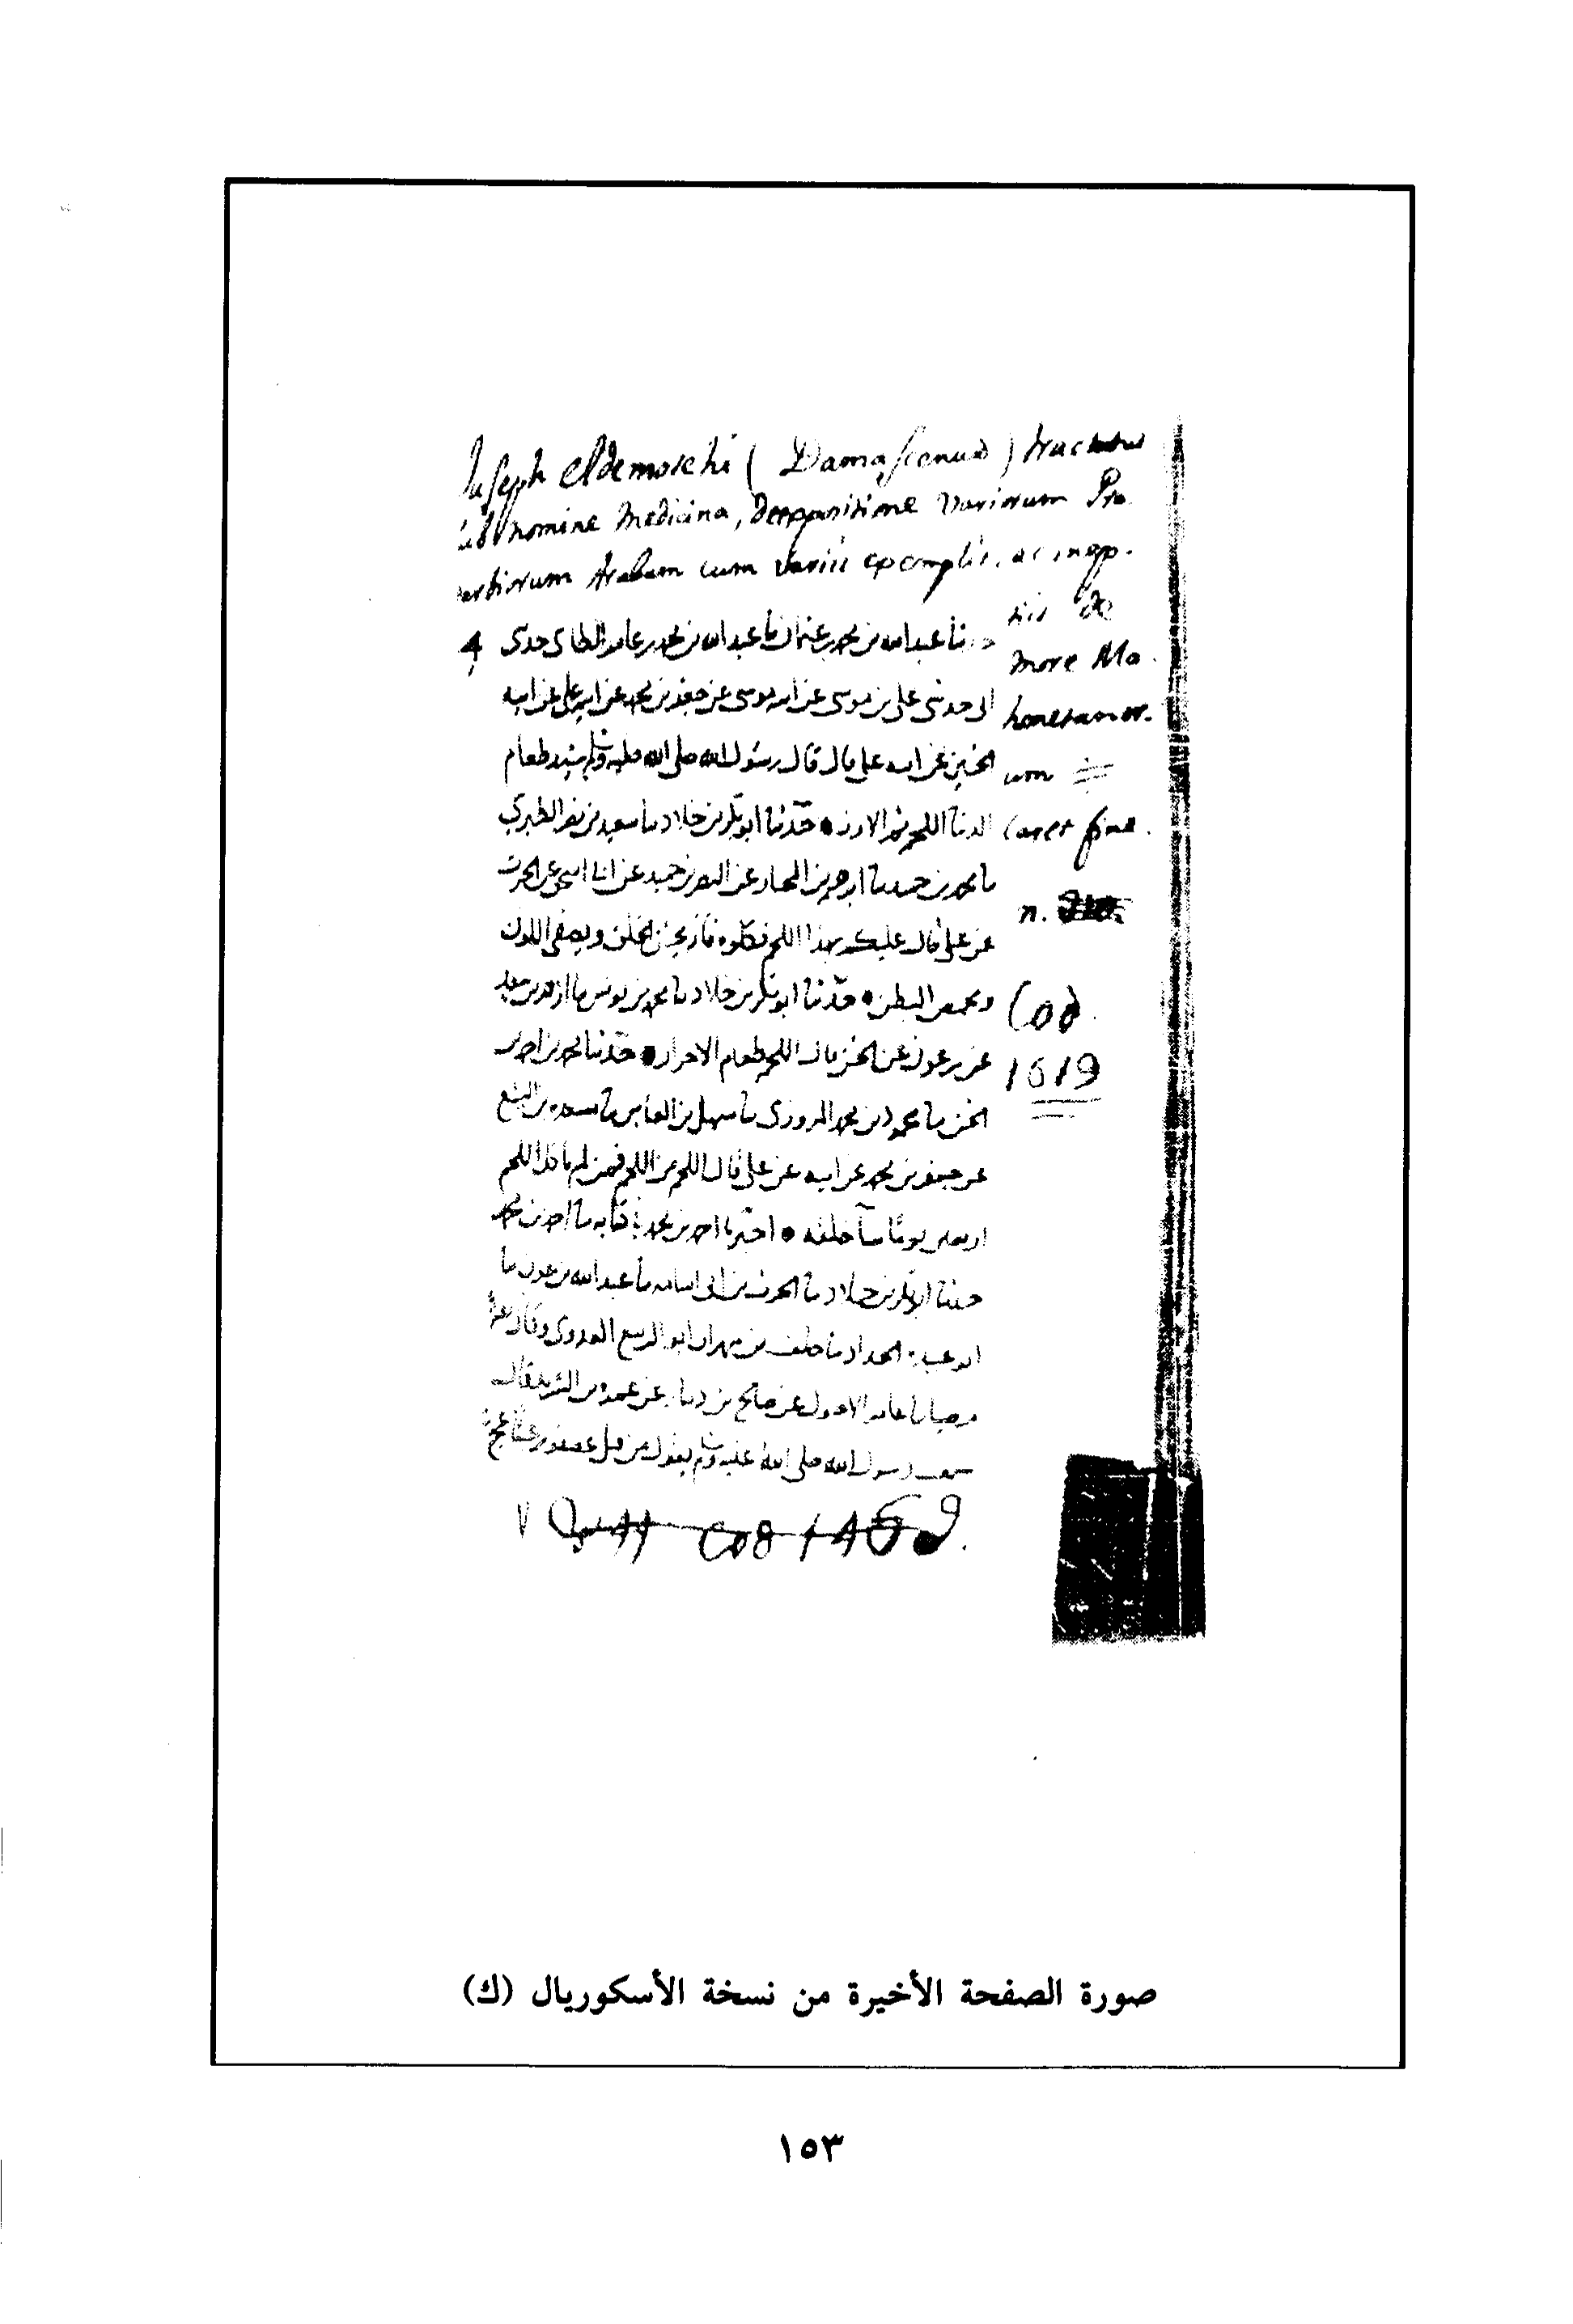 Juseph eldemoschi (Damascenus) tractatus
sub nomine Medicina, variorum Pro
Arabum cum variis exemplis, ac
de
more Ma
hometanor.
um
caret fine.
n.
Cod.
1619
4
عبدالله بن محمد بن عثمان نا عبدالله بن محمد بن عامر الطائى حدثنى
ابى حدثنى على بن موسى عن ابيه موسى عن جعفر بن محمد عن ابيه على عن ابيه
الحسين عن ابيه على قال قال رسول الله صلى الله عليه وسلم سيد طعام
الدنيا اللحم ثم الارز • حدثنا ابو بكر بن خلاد نا سعيد بن نصر الطبري
نا محمد بن حميد نا ابرهيم بن المختار عن النضر بن حميد عن ابى اسحق عن الحرث
عن على قال عليكم بهذا اللحم فكلوه فانه يحسن الخلق ويصفى اللون
ويخمص البطن • حدثنا ابو بكر بن خلاد نا محمد بن يونس نا ازهر بن سعد
عن بن عون عن الحسن قال اللحم طعام الاحرار • حدثنا محمد بن احمد بن
الحسن نا محمود بن محمد المروزى نا سهل بن العباس نا
عن جعفر بن محمد عن ابيه عن على قال اللحم من اللحم فمن لم ياكل اللحم
اربعين يوما سآ خلقه • اخبرنا احمد بن محمد فى كتابه نا احمد بن محمد
حدثنا ابو بكر بن خلاد نا الحرث بن ابى اسامه نا عبدالله بن عون نا
ابو عبيدة الحداد نا خلف بن مهران ابو الربيع العدوى وكان
نا عامر الاحول عن صالح بن دينار عن عمرو بن الشريد قال
سمعت رسول الله صلى الله عليه وسلم يقول من قتل عصفورا عبثا عج
Cod
صورة الصفحة الأخيرة من نسخة الأسكوريال (ك)
١٥٣